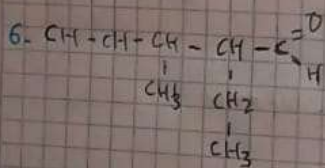 O
6- CH - CH - CH - CH - C
H
CH3 CH2
CH3